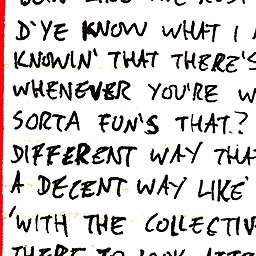 D'YE KNOW WHAT I
KNOWIN' THAT THERE'S
WHENEVER YOU'RE W
SORTA FUN'S THAT?
DIFFERENT WAY THA
A DECENT WAY LIKE
'WITH THE COLLECTIV
THERE TO LOOK AFTER